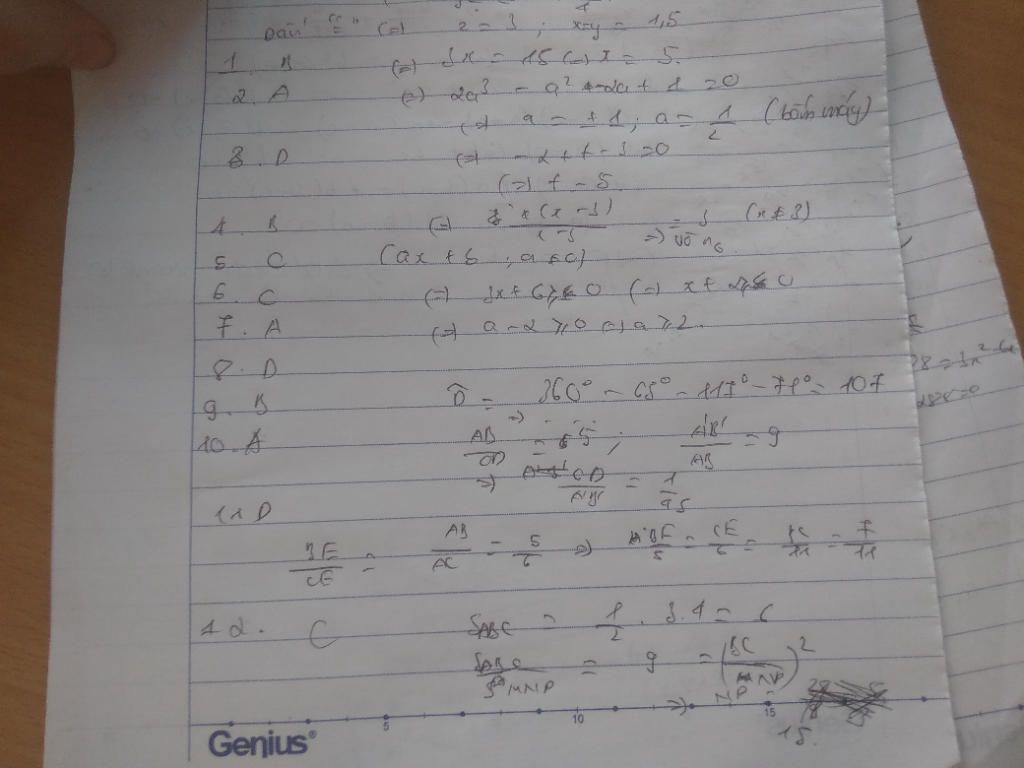 Dấu "=" (=) z = 3 ; x=y = 1,5
1. B (=) 3x = 15 (=) x = 5.
2. A (=) 2a³ - a² - 2a + 1 = 0
(=) a = ±1 ; a = 1/2 (bấm máy)
3. D (=) -2 + t - 3 = 0
(=) t = 5
4. B (=) x(x-3)/x-3 = 3 (x≠3) => vô n₀
5. C (ax + b ; a ≠ 0)
6. C (=) 3x + 6 ≤ 0 (=) x + 2 ≤ 0
7. A (=) a - 2 ≥ 0 (=) a ≥ 2.
8. D
9. B D̂ = 360° - 65° - 117° - 71° = 107
10. A => AB/CD = 5 ; A'B'/AB = 9
=> CD/A'B' = 1/45
11 D
BE/CE = AB/AC = 5/6 => BE/5 = CE/6 = BC/11 = 7/11
12. C S ABC = 1/2 . 3.4 = 6
S ABC/S MNP = 9 = (BC/NP)²
=> NP =
15.
5 10 15
Genius®
28 = 3x² - 6x